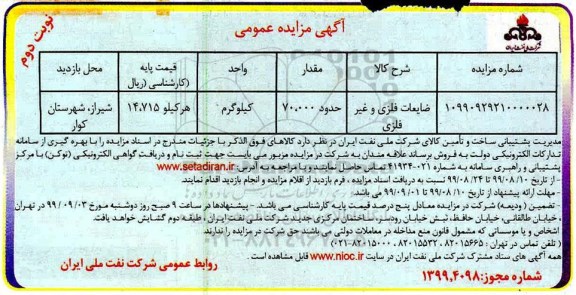 آگهی مزایده عمومی
نوبت دوم
شماره مزایده
شرح کالا
مقدار
واحد
قیمت پایه (کارشناسی (ریال
محل بازدید
۱۰۹۹۰۹۲۹۲۱۰۰۰۰۰۲۸
ضایعات فلزی و غیر فلزی
حدود ۷۰,۰۰۰
کیلوگرم
هرکیلو ۱۴,۷۱۵
شیراز، شهرستان کوار
مدیریت پشتیبانی ساخت و تأمین کالای شرکت ملی نفت ایران در نظر دارد کالاهای فوق الذکر با جزئیات مندرج در اسناد مزایده را با بهره گیری از سامانه
تدارکات الکترونیکی دولت به فروش برساند علاقه مندان به شرکت در مزایده مزبور می بایست جهت ثبت نام و دریافت گواهی الکترونیکی (توکن) با مرکز
پشتیبانی و راهبری سامانه به شماره ۰۲۱-۴۱۹۳۴ تماس حاصل نمایند و با مراجعه به آدرس: www.setadiran.ir
- از تاریخ ۹۹/۰۸/۱۰ تا ۹۹/۰۸/۲۴ نسبت به دریافت اسناد مزایده ، فرم بازدید از اقلام مزایده و انجام بازدید اقدام نمایند.
- مهلت ارائه پیشنهاد از تاریخ ۹۹/۰۸/۱۰ تا ۹۹/۰۹/۰۱ می باشد.
- تضمین ( ودیعه) شرکت در مزایده معادل پنج درصد قیمت پایه کارشناسی می باشد. - پیشنهادها در ساعت ۹ صبح روز دوشنبه مورخ ۹۹/۰۹/۰۳ در تهران
، خیابان طالقانی، خیابان حافظ، نبش خیابان رودسر، ساختمان مرکزی جدید شرکت ملی نفت ایران ، طبقه دوم گشایش خواهد یافت.
اشخاص و یا موسساتی که مشمول قانون منع مداخله در معاملات دولتی می باشند حق شرکت در مزایده را ندارند
( تلفن تماس در تهران : ۸۲۰۱۵۶۶۵ ، ۸۲۰۱۵۵۳۲ ، ۸۲۰۱۵۰۰۰-۰۲۱)
همه آگهی های ستاد مشترک شرکت ملی نفت ایران در سایت www.nioc.ir قابل مشاهده است .
روابط عمومی شرکت نفت ملی ایران
شماره مجوز: ۱۳۹۹,۴۰۹۸